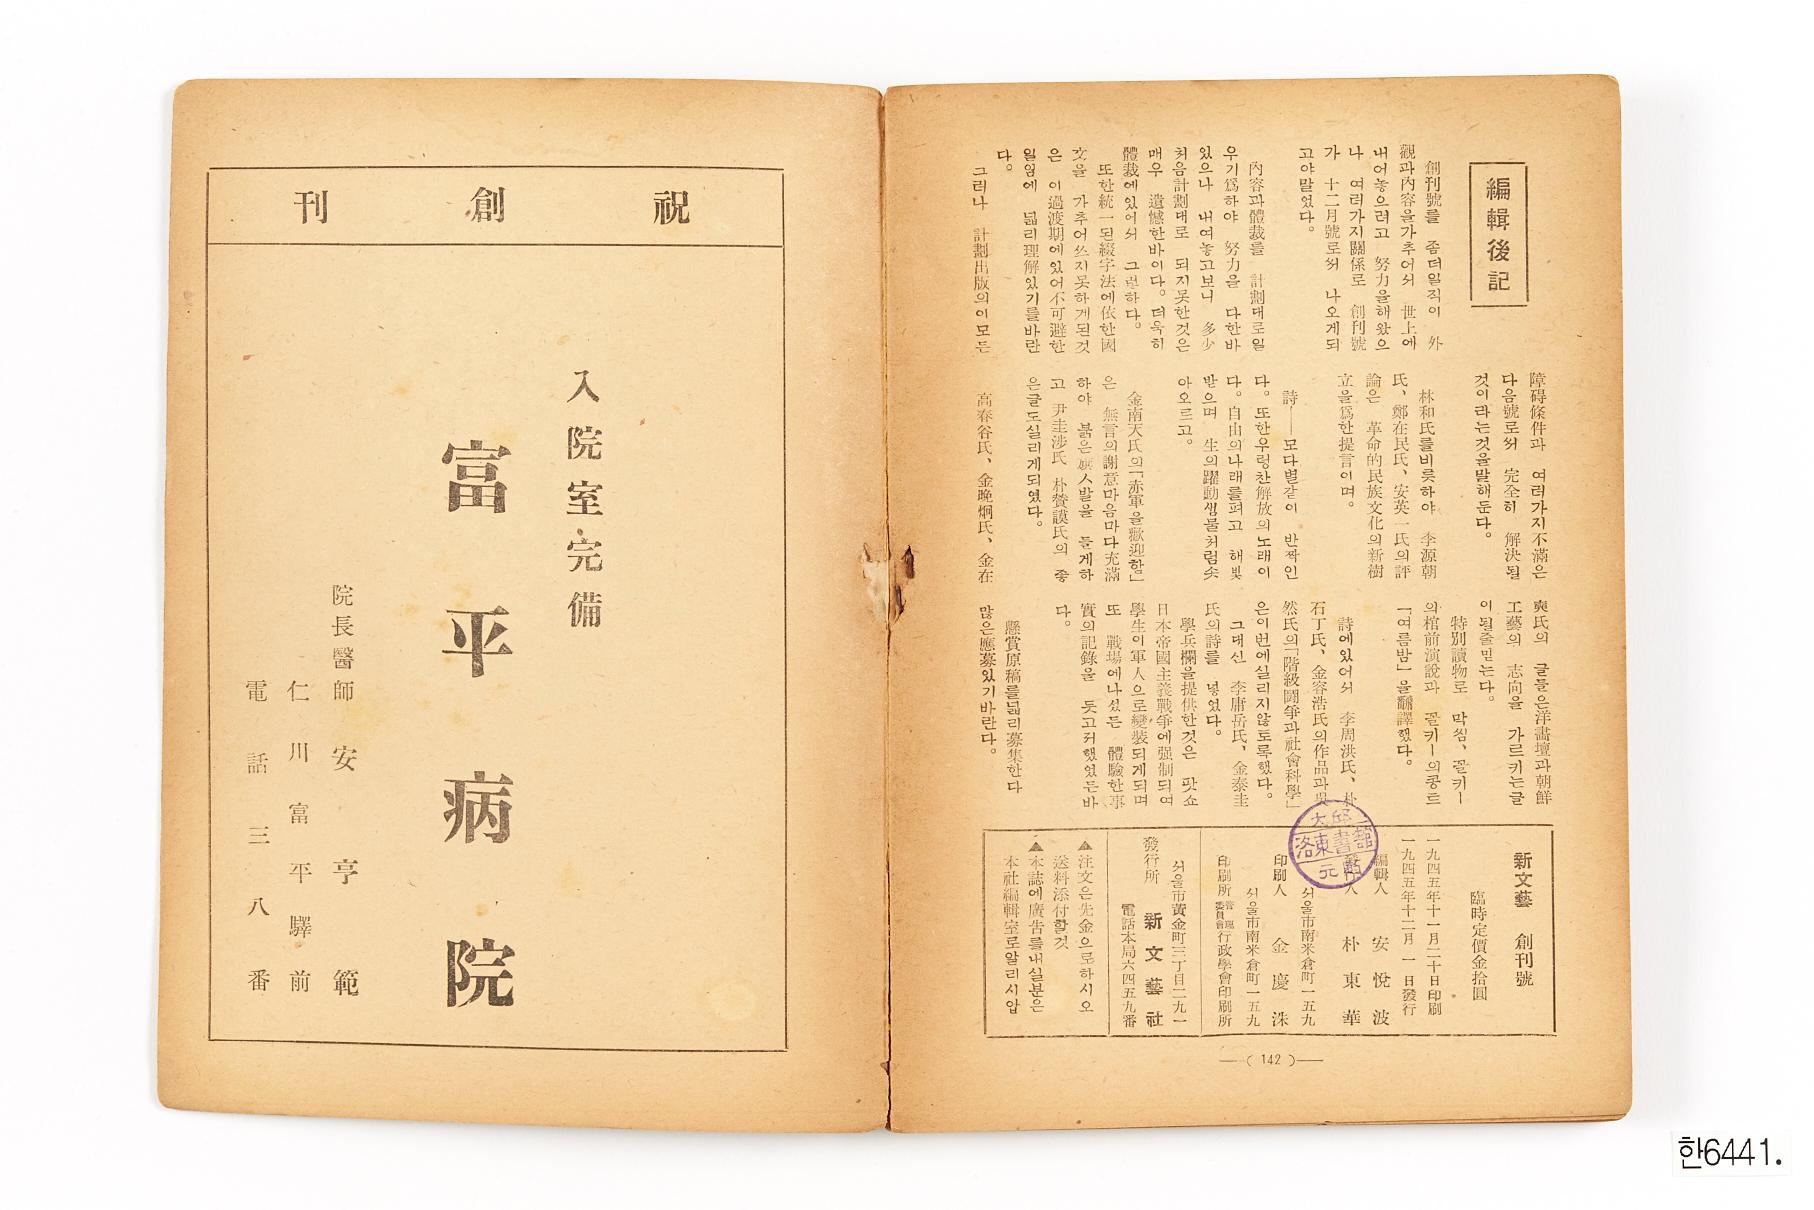 編輯後記
創刊號를 좀더일직이 外
觀과內容을가추어서 世上에
내어놓으려고 努力을해왔으
나 여러가지關係로 創刊號
가 十二月號로써 나오게되
고야말었다。
內容과體裁를 計劃대로일
우기爲하야 努力을 다한바
있으나 내여놓고보니 多少
처음計劃대로 되지못한것은
매우 遺憾한바이다。더욱히
體裁에있어서 그런하다。
또한統一된綴字法에依한國
文을 가추어쓰지못하게된것
은 이過渡期에있어不可避한
일임에 넓리理解있기를바란
다。
그러나 計劃出版의이모든
障碍條件과 여러가지不滿은
다음號로써 完全히 解決될
것이라는것을말해둔다。
林和氏를비롯하야 李源朝
氏、鄭在民氏、安英一氏의評
論은 革命的民族文化의新樹
立을爲한提言이며。
詩──모다별같이 반짝인
다。또한우렁찬解放의노래이
다。自由의나래를펴고 해빛
받으며 生의躍動생물처럼솟
아오르고。
金南天氏의「赤軍을歡迎함」
은 無言의謝意마음마다充滿
하야 붉은廣人발을 들게하
고 尹圭涉氏 朴贊謨氏의 좋
은글도실리게되였다。
高春谷氏、金晩炯氏、金在
爽氏의 글들은洋畵壇과朝鮮
工藝의 志向을 가르키는글
이될줄믿는다。
特別讀物로 막씸、꼴키ー
의棺前演說과 꼴키ー의콩트
「여름밤」을飜譯했다。
詩에있어서 李周洪氏、朴
石丁氏、金容浩氏의作品과吳
然氏의「階級鬪爭과社會科學」
은이번에실리지않토록했다。
그대신 李庸岳氏、金泰圭
氏의詩를 넣었다。
學兵欄을提供한것은 팟쇼
日本帝國主義戰爭에强制되여
學生이軍人으로變裝되게되며
또 戰場에나섰든 體驗한事
實의記錄을 듯고저했었든바
다。
懸賞原稿를넓리募集한다
많은應募있기바란다。
新文藝 創刊號
臨時定價金拾圓
一九四五年十一月二十日印刷
一九四五年十二月一日發行
編輯人 安悅波
發行人 朴東華
서울市南米倉町一五九
印刷人 金慶洙
서울市南米倉町一五九
印刷所 管理委員會行政學會印刷所
서울市黃金町三丁目二九一
發行所 新文藝社
電話本局六四五九番
▲注文은先金으로하시오
送料添付할것
▲本誌에廣告를내실분은
本社編輯室로알리시압
大邱
洛東書館
元町
──( 142 )──
祝創刊
入院室完備
富平病院
院長醫師 安亨範
仁川富平驛前
電話三八番
한6441.